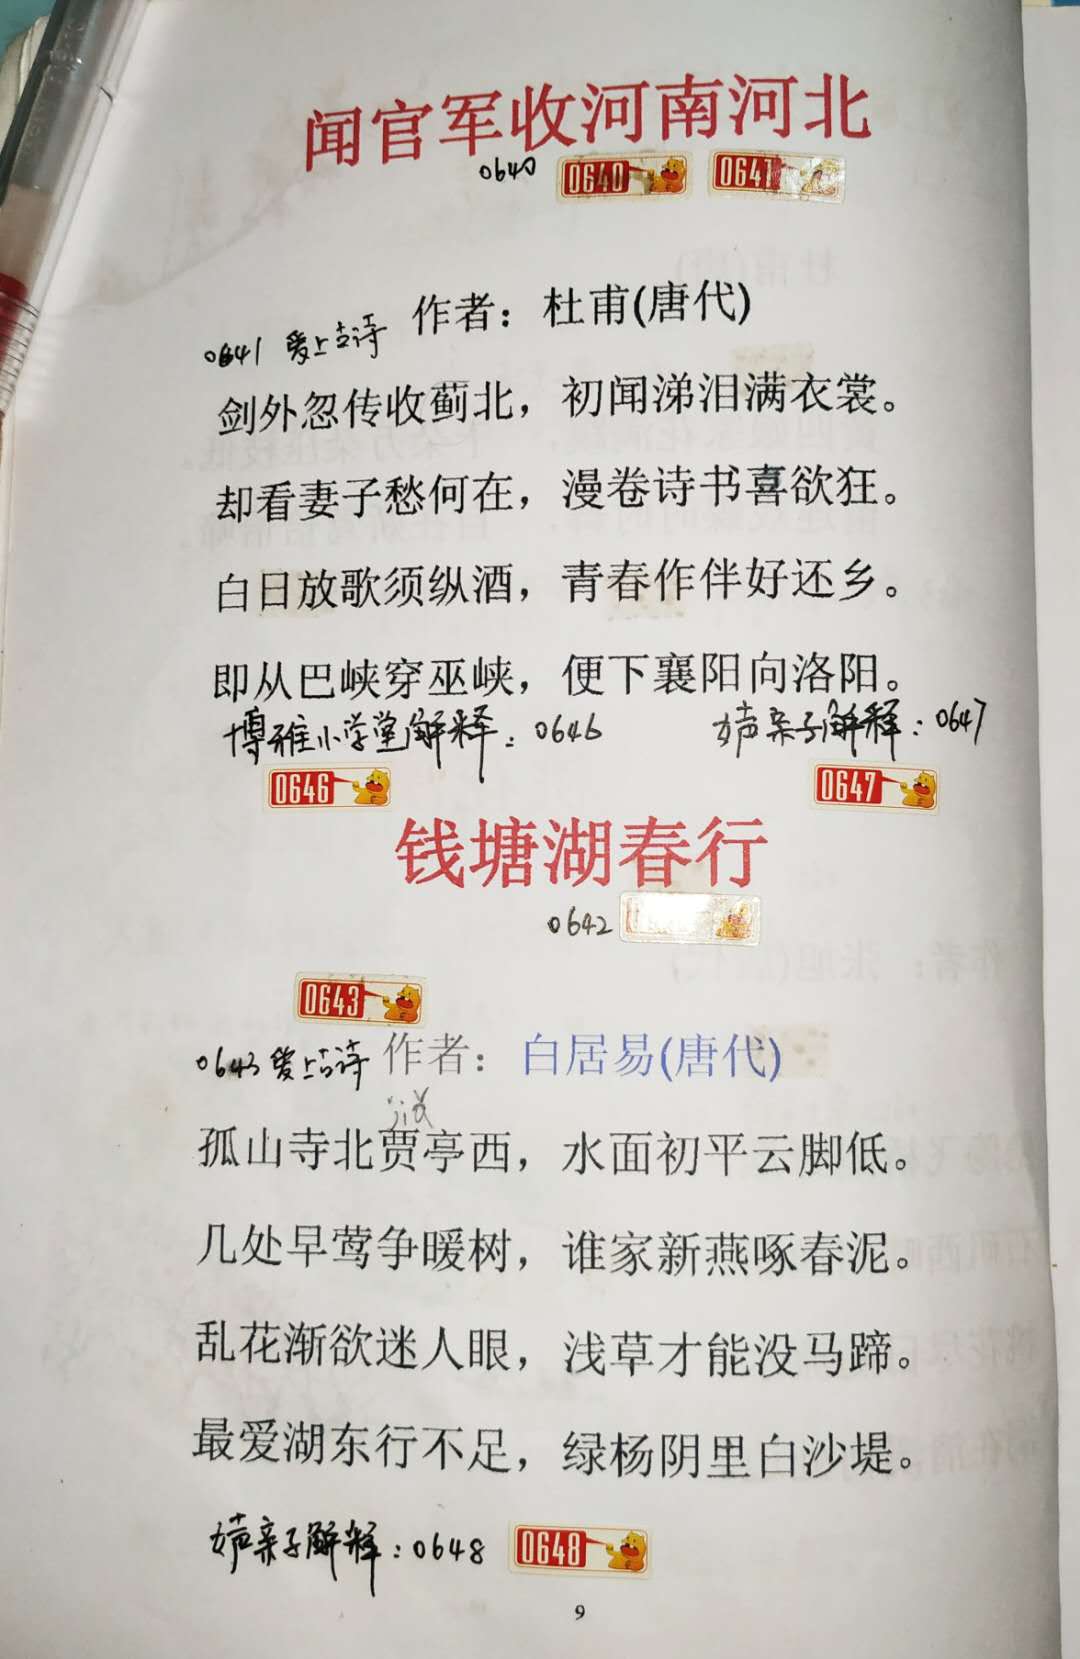 闻官军收河南河北
0640 0640 0641
作者：杜甫(唐代)
0641 爱上古诗
剑外忽传收蓟北，初闻涕泪满衣裳。
却看妻子愁何在，漫卷诗书喜欲狂。
白日放歌须纵酒，青春作伴好还乡。
即从巴峡穿巫峡，便下襄阳向洛阳。
博雅小学堂解释：0646 婧亲子解释：0647
0646 0647
钱塘湖春行
0642
0643
0643 爱上古诗 作者：白居易(唐代)
jiǎ
孤山寺北贾亭西，水面初平云脚低。
几处早莺争暖树，谁家新燕啄春泥。
乱花渐欲迷人眼，浅草才能没马蹄。
最爱湖东行不足，绿杨阴里白沙堤。
亲子解释：0648 0648
9